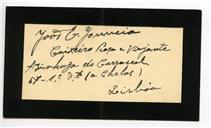 João C. Gouveia
Caixeiro Rosa e Viajante
Azinhaga do Carrascal
67-1º Dº (a Chelas)
Lisboa